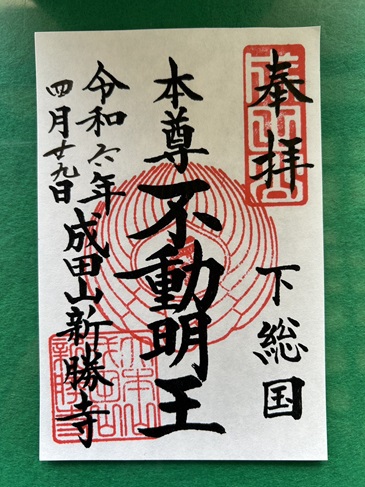 奉拝
下総国
本尊
不動明王
令和六年
四月廿九日
成田山新勝寺